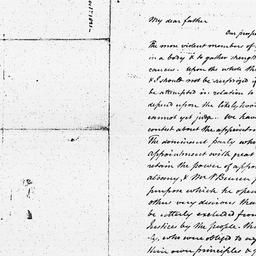 My dear father
Our prosp
The more violent members of
in a body & to gather strength
caucus. Upon the whole th
& I should not be surprized if
be attempted in relation to
depend upon the likelyhood
cannot yet judge. We have
contest about the appointm
The dominant party who
appointment with great
retain the power of appo
attorney, & Mr
purpose which he open
other very decisive that
be utterly excluded from
Justices by the people. th
who were obliged to
their own principles &